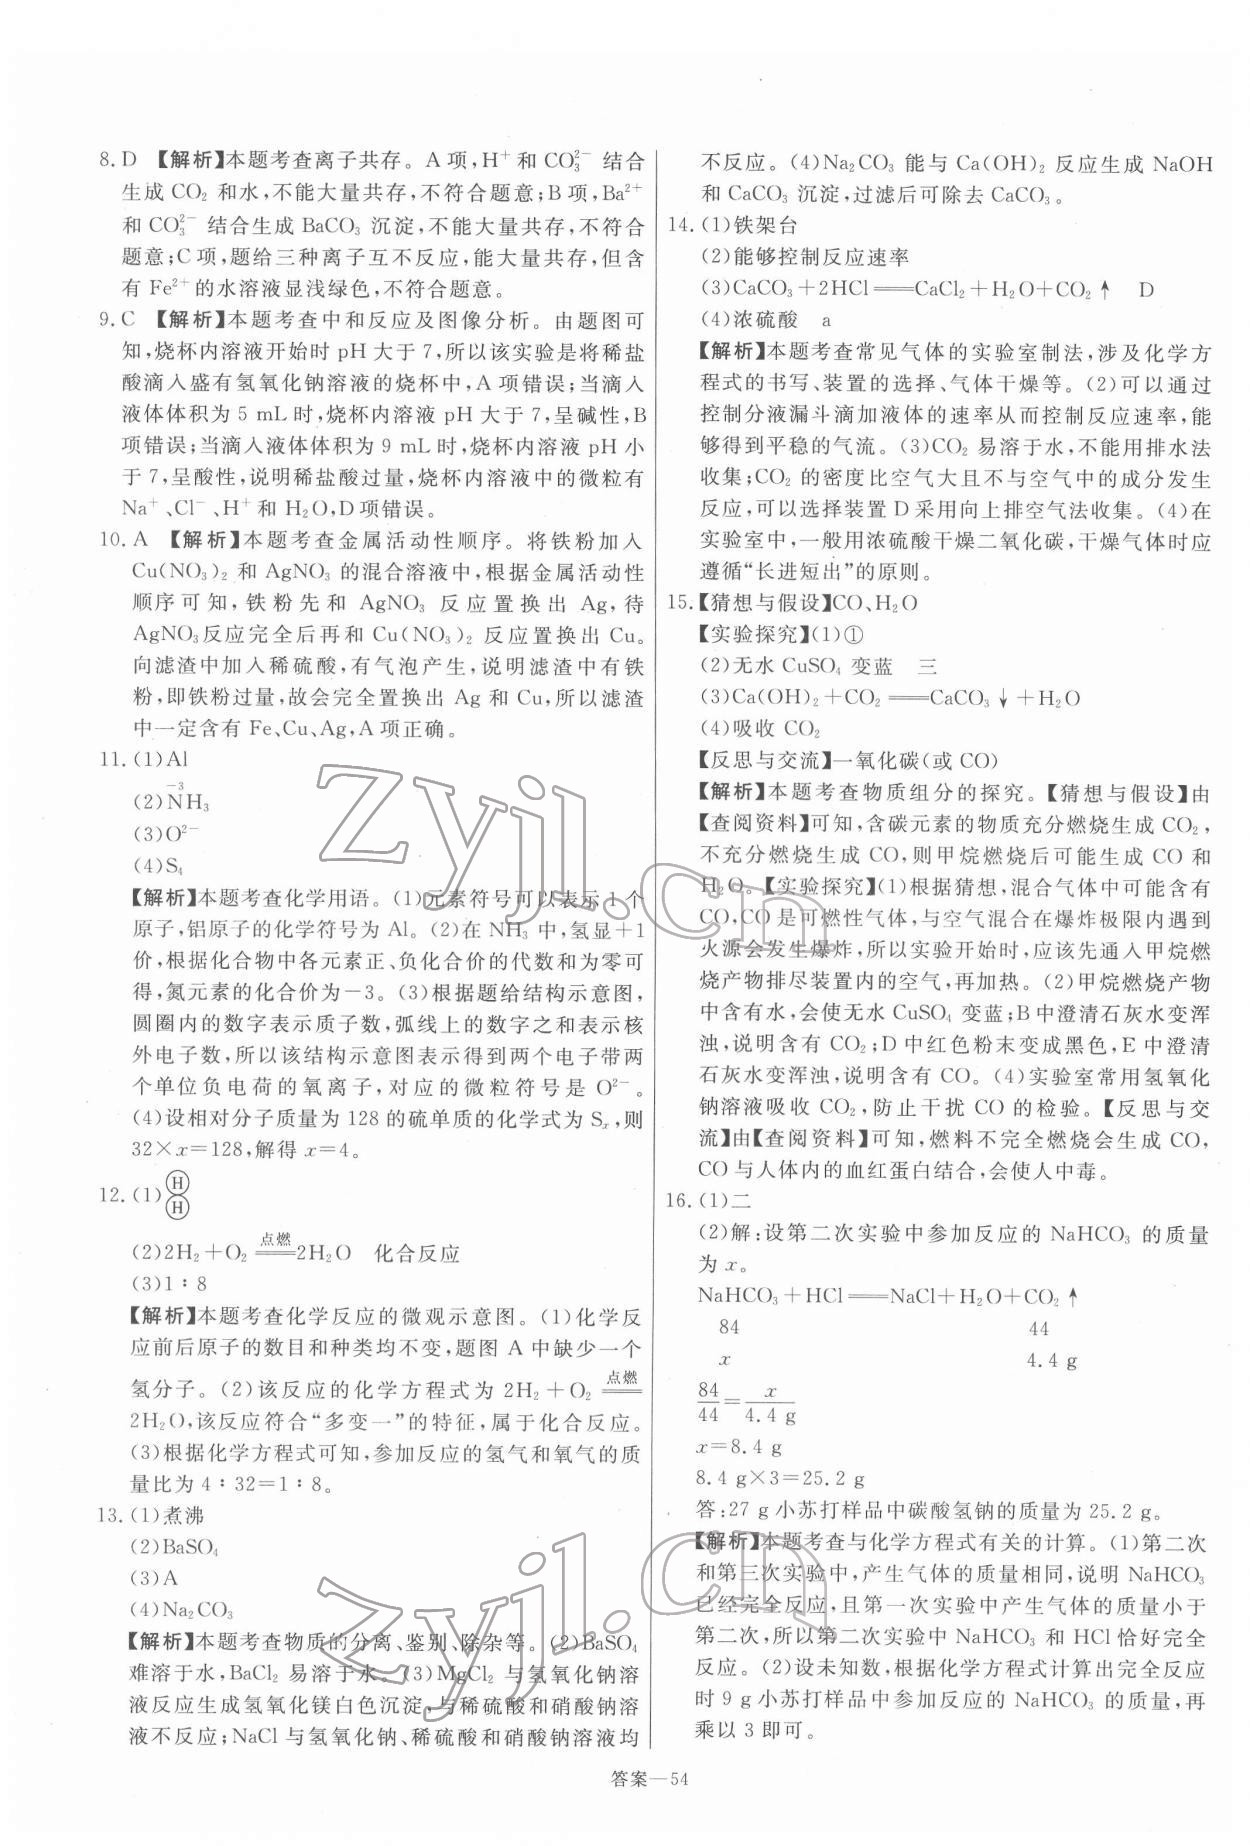 8. D 【解析】本题考查离子共存。A 项,H⁺ 和 CO₃²⁻ 结合
生成 CO₂ 和水,不能大量共存,不符合题意;B 项,Ba²⁺
和 CO₃²⁻ 结合生成 BaCO₃ 沉淀,不能大量共存,不符合
题意;C 项,题给三种离子互不反应,能大量共存,但含
有 Fe²⁺ 的水溶液显浅绿色,不符合题意。
9. C 【解析】本题考查中和反应及图像分析。由题图可
知,烧杯内溶液开始时 pH 大于 7,所以该实验是将稀盐
酸滴入盛有氢氧化钠溶液的烧杯中,A 项错误;当滴入
液体体积为 5 mL 时,烧杯内溶液 pH 大于 7,呈碱性,B
项错误;当滴入液体体积为 9 mL 时,烧杯内溶液 pH 小
于 7,呈酸性,说明稀盐酸过量,烧杯内溶液中的微粒有
Na⁺、Cl⁻、H⁺ 和 H₂O,D 项错误。
10. A 【解析】本题考查金属活动性顺序。将铁粉加入
Cu(NO₃)₂ 和 AgNO₃ 的混合溶液中,根据金属活动性
顺序可知,铁粉先和 AgNO₃ 反应置换出 Ag,待
AgNO₃反应完全后再和 Cu(NO₃)₂ 反应置换出 Cu。
向滤渣中加入稀硫酸,有气泡产生,说明滤渣中有铁
粉,即铁粉过量,故会完全置换出 Ag 和 Cu,所以滤渣
中一定含有 Fe、Cu、Ag,A 项正确。
11. (1)Al
−3
(2)NH₃
(3)O²⁻
(4)S₄
【解析】本题考查化学用语。(1)元素符号可以表示 1 个
原子,铝原子的化学符号为 Al。(2)在 NH₃ 中,氢显+1
价,根据化合物中各元素正、负化合价的代数和为零可
得,氮元素的化合价为−3。(3)根据题给结构示意图,
圆圈内的数字表示质子数,弧线上的数字之和表示核
外电子数,所以该结构示意图表示得到两个电子带两
个单位负电荷的氧离子,对应的微粒符号是 O²⁻。
(4)设相对分子质量为 128 的硫单质的化学式为 Sₓ,则
32×x=128,解得 x=4。
12. (1) H H
(2)2H₂+O₂ 点燃══ 2H₂O 化合反应
(3)1∶8
【解析】本题考查化学反应的微观示意图。(1)化学反
应前后原子的数目和种类均不变,题图 A 中缺少一个
氢分子。(2)该反应的化学方程式为 2H₂+O₂ 点燃══
2H₂O,该反应符合“多变一”的特征,属于化合反应。
(3)根据化学方程式可知,参加反应的氢气和氧气的质
量比为 4∶32=1∶8。
13. (1)煮沸
(2)BaSO₄
(3)A
(4)Na₂CO₃
【解析】本题考查物质的分离、鉴别、除杂等。(2)BaSO₄
难溶于水,BaCl₂ 易溶于水。(3)MgCl₂ 与氢氧化钠溶
液反应生成氢氧化镁白色沉淀,与稀硫酸和硝酸钠溶
液不反应;NaCl 与氢氧化钠、稀硫酸和硝酸钠溶液均
不反应。(4)Na₂CO₃ 能与 Ca(OH)₂ 反应生成 NaOH
和 CaCO₃ 沉淀,过滤后可除去 CaCO₃。
14. (1)铁架台
(2)能够控制反应速率
(3)CaCO₃+2HCl══CaCl₂+H₂O+CO₂↑ D
(4)浓硫酸 a
【解析】本题考查常见气体的实验室制法,涉及化学方
程式的书写、装置的选择、气体干燥等。(2)可以通过
控制分液漏斗滴加液体的速率从而控制反应速率,能
够得到平稳的气流。(3)CO₂ 易溶于水,不能用排水法
收集;CO₂ 的密度比空气大且不与空气中的成分发生
反应,可以选择装置 D 采用向上排空气法收集。(4)在
实验室中,一般用浓硫酸干燥二氧化碳,干燥气体时应
遵循“长进短出”的原则。
15. 【猜想与假设】CO、H₂O
【实验探究】(1)①
(2)无水 CuSO₄ 变蓝 三
(3)Ca(OH)₂+CO₂══CaCO₃↓+H₂O
(4)吸收 CO₂
【反思与交流】一氧化碳(或 CO)
【解析】本题考查物质组分的探究。【猜想与假设】由
【查阅资料】可知,含碳元素的物质充分燃烧生成 CO₂,
不充分燃烧生成 CO,则甲烷燃烧后可能生成 CO 和
H₂O。【实验探究】(1)根据猜想,混合气体中可能含有
CO,CO 是可燃性气体,与空气混合在爆炸极限内遇到
火源会发生爆炸,所以实验开始时,应该先通入甲烷燃
烧产物排尽装置内的空气,再加热。(2)甲烷燃烧产物
中含有水,会使无水 CuSO₄ 变蓝;B 中澄清石灰水变浑
浊,说明含有 CO₂;D 中红色粉末变成黑色,E 中澄清
石灰水变浑浊,说明含有 CO。(4)实验室常用氢氧化
钠溶液吸收 CO₂,防止干扰 CO 的检验。【反思与交
流】由【查阅资料】可知,燃料不完全燃烧会生成 CO,
CO 与人体内的血红蛋白结合,会使人中毒。
16. (1)二
(2)解:设第二次实验中参加反应的 NaHCO₃ 的质量
为 x。
NaHCO₃+HCl══NaCl+H₂O+CO₂↑
84 44
x 4.4 g
84/44=x/4.4 g
x=8.4 g
8.4 g×3=25.2 g
答:27 g 小苏打样品中碳酸氢钠的质量为 25.2 g。
【解析】本题考查与化学方程式有关的计算。(1)第二次
和第三次实验中,产生气体的质量相同,说明 NaHCO₃
已经完全反应,且第一次实验中产生气体的质量小于
第二次,所以第二次实验中 NaHCO₃ 和 HCl 恰好完全
反应。(2)设未知数,根据化学方程式计算出完全反应
时 9 g 小苏打样品中参加反应的 NaHCO₃ 的质量,再
乘以 3 即可。
答案—54
zyjl.cn
zyjl.cn